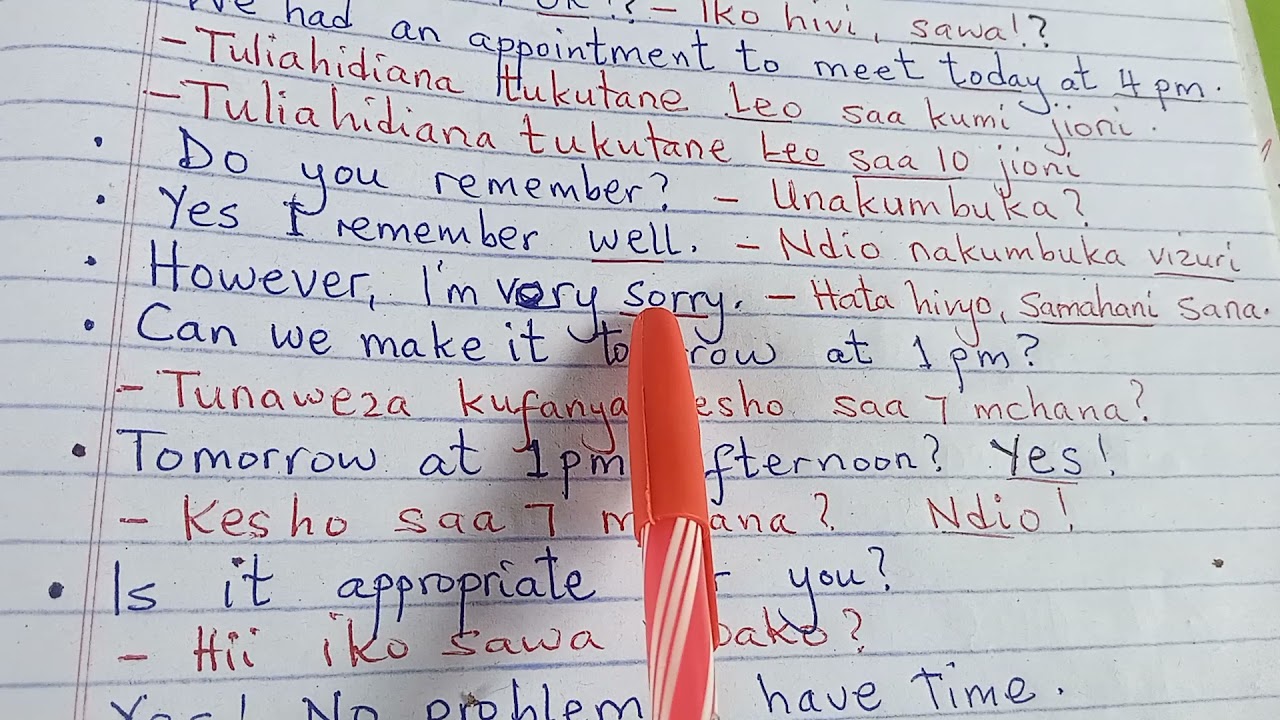 OK!? - Iko hivi, sawa!?
had an appointment to meet today at 4 pm.
- Tuliahidiana tukutane Leo saa kumi jioni.
- Tuliahidiana tukutane Leo saa 10 jioni
• Do you remember? - Unakumbuka?
• Yes I remember well. - Ndio nakumbuka vizuri
• However, I'm very sorry. - Hata hivyo, Samahani sana.
• Can we make it at 1 pm?
- Tunaweza kufanya saa 7 mchana?
• Tomorrow at 1pm Yes!
- Kesho saa 7 Ndio!
• Is it appropriate you?
- Hii iko sawa
Yes! No problem have Time.